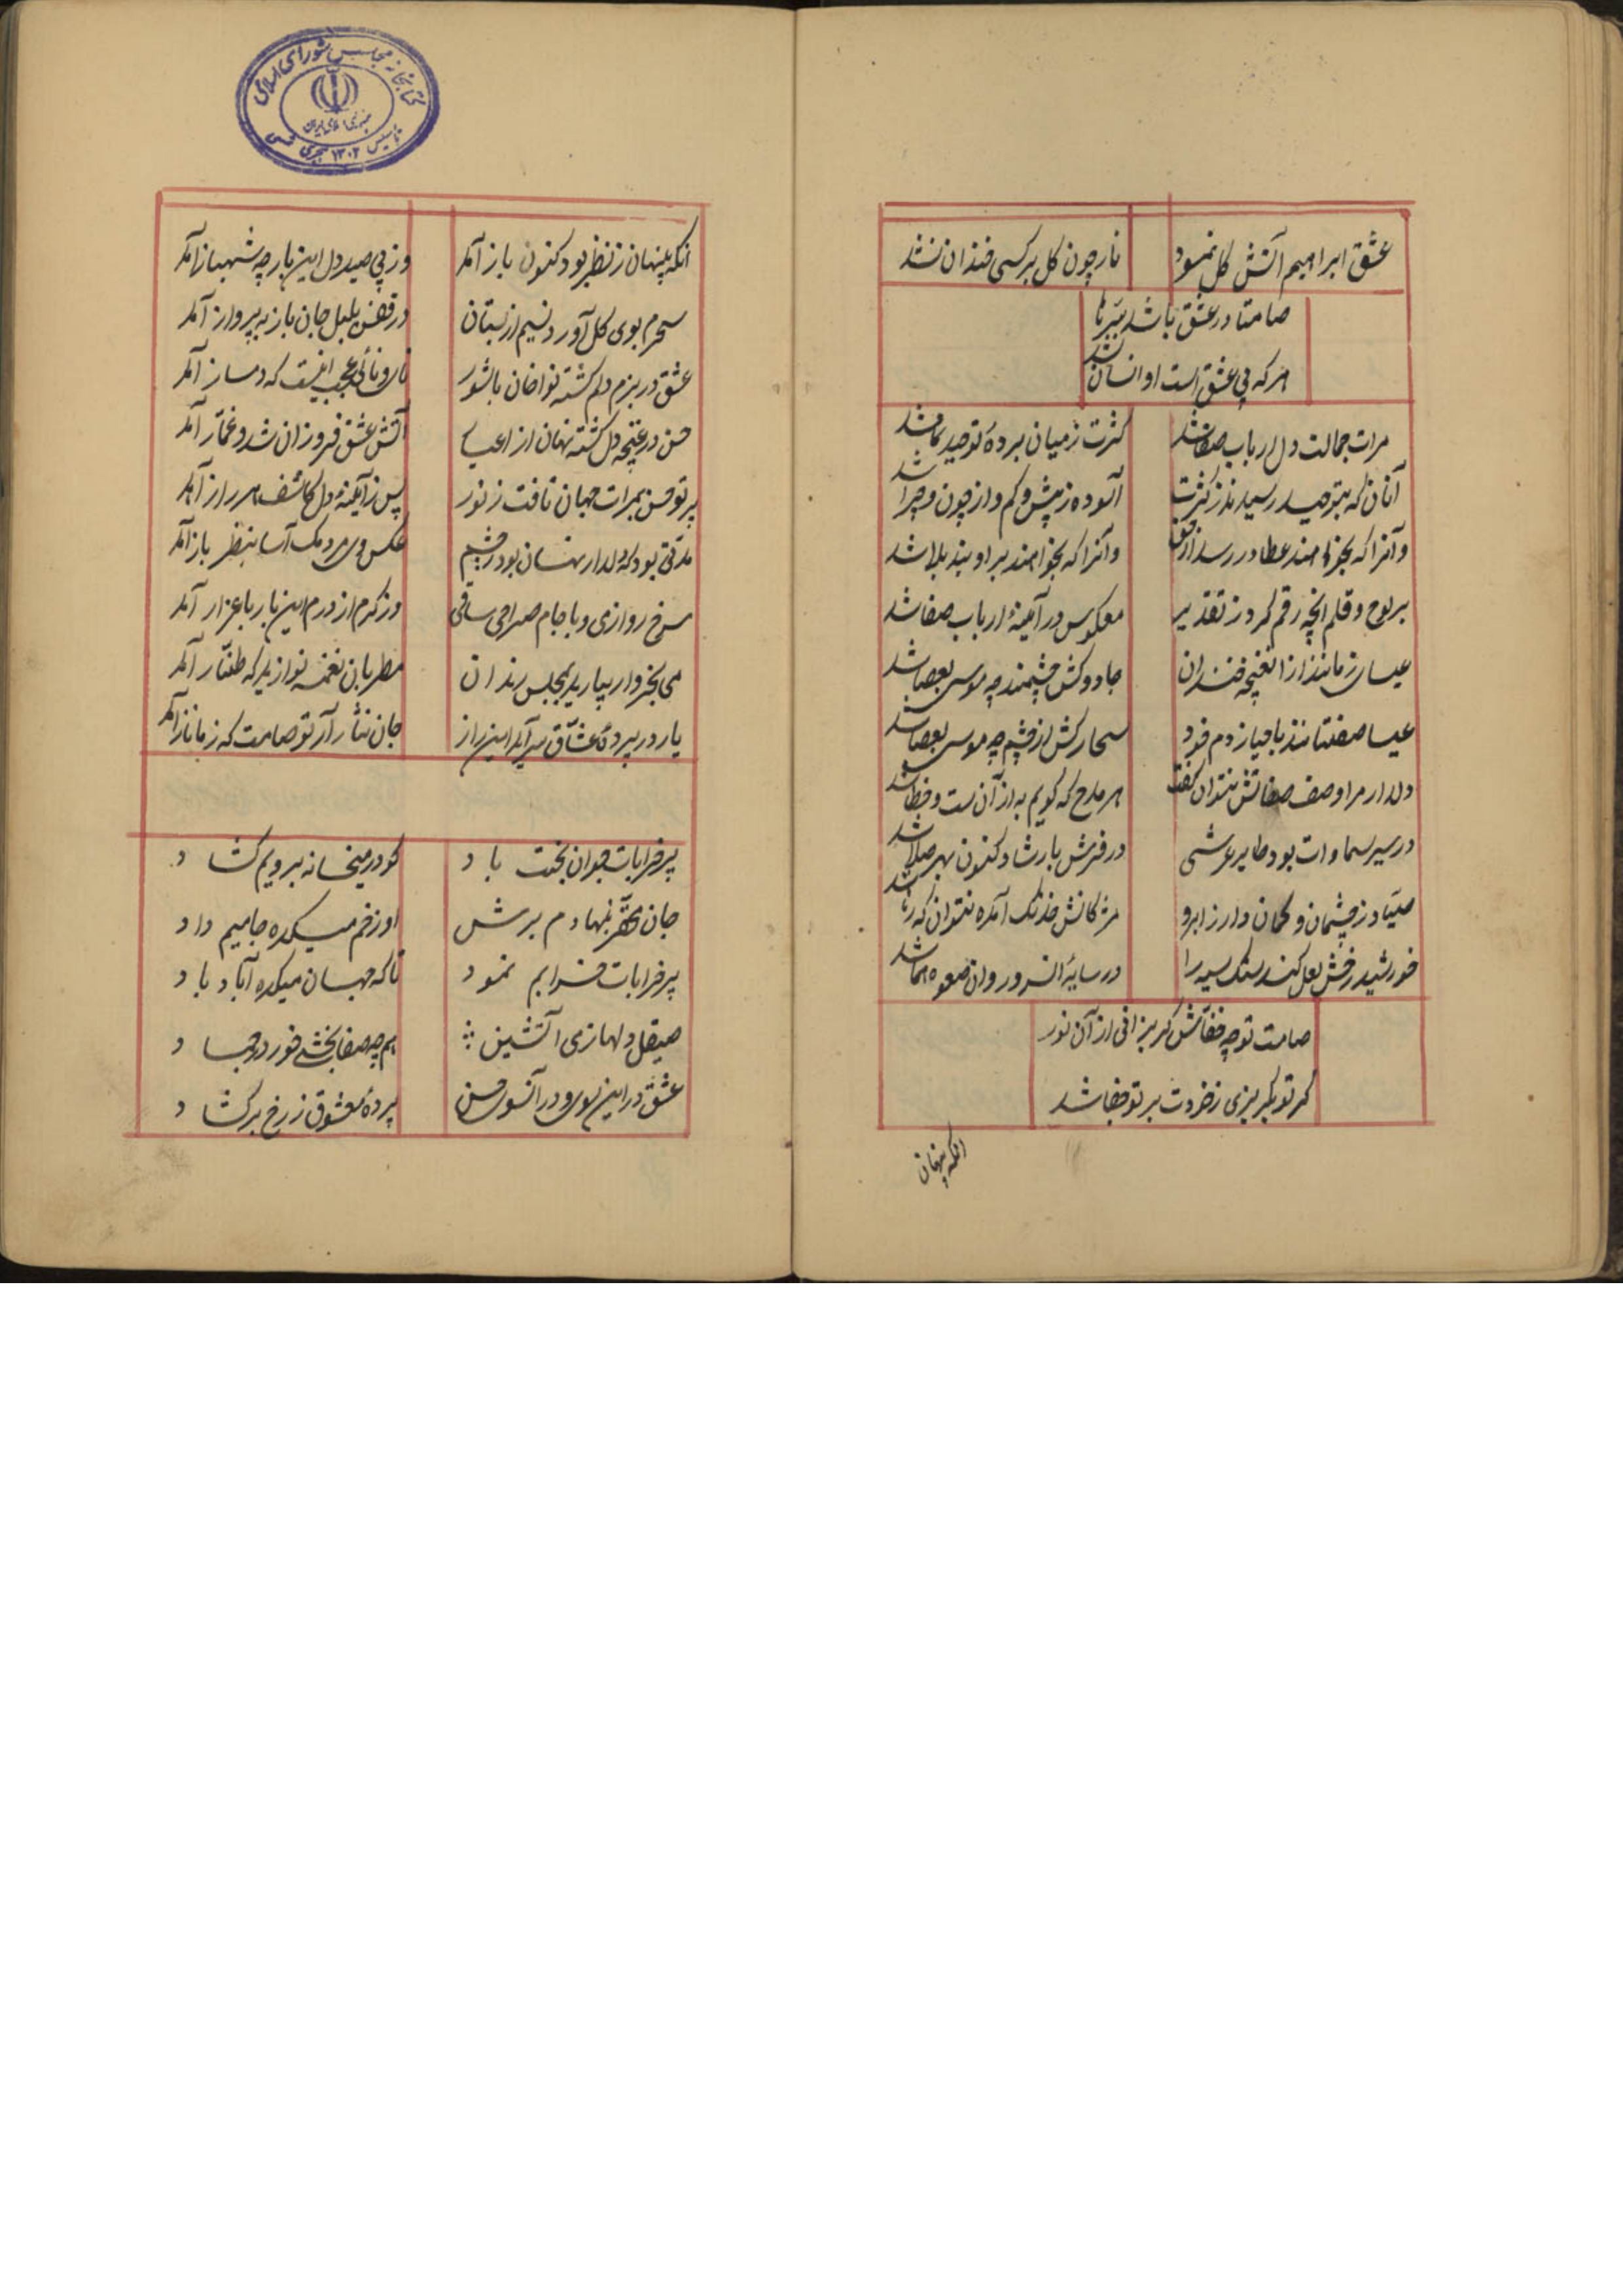 عشق ابراهیم آتش گل نمود
نار چون گل بر کسی خندان نشد
صامتا در عشق باشد
هر که بی عشق است او انسان نشد
مرات جمالت دل ارباب صفا شد
کثرت ز میان برده توحید نما شد
آنان که بتوحید رسیدند ز کثرت
آسوده ز بیش و کم و از چون و چرا شد
و آنرا که بخواهند عطا در رسد از حق
و آنرا که نخواهند بر او بند بلا شد
بر لوح و قلم انچه رقم کرد ز تقدیر
معکوس در آینهٔ ارباب صفا شد
عیسای زمانند از انغنچه خندان
جادو کش چشمند چه موسی بعصا شد
عیسا صفتانند باحیا ز دم خود
سحار کش از چشم چه موسی بعصا شد
دلدار مرا وصف صفاتش نتوان گفت
هر مدح که گویم به از آن ست و خطا شد
در سیر سماوات بود طایر عرشی
در فرش بارشاد کنون بهر صلا شد
صیاد ز چشمان و کمان دار ز ابرو
مژکانش خدنک آمده نتوان که رها شد
خورشید رخش لعل کند سنک سیه را
در سایهٔ انسرو روان صعوه هما شد
صامت تو چه خفاش گریزانی از آن نور
گر تو بگریزی ز خودت بر تو جفا شد
انکه پنهان
انکه پنهان ز نظر بود کنون باز آمد
وز پی صید دل این بار چه شهباز آمد
سحرم بوی گل آورد نسیم از بستان
در قفس بلبل جان باز به پرواز آمد
عشق در بزم دلم گشته نواخان با شور
نای و نائی عجب اینست که دمساز آمد
حسن در غنچه دل گشته نهان از اغیار
آتش عشق فروزان شد و غماز آمد
پرتو حسن بمرات جهان تافت ز نور
پس ز آینهٔ دل کاشف هر راز آمد
مدتی بود که دلدار نهان بود ز چشم
عکس وی مردمک آسا بنظر باز آمد
سرخ رو از می و با جام صراحی ساقی
وز کرم از درم این بار باعزاز آمد
می بخروار بیارید بمجلس رندان
مطربان نغمه نوازید که طناز آمد
یار در پرده عشاق سراید این راز
جان نثار آر تو صامت که زمان ناز آمد
پیر خرابات جوان بخت باد
کو در میخانه برویم گشاد
جان محقر بنهادم برش
او ز خم میکده جامیم داد
پیر خرابات خرابم نمود
تا که جهان میکده آباد باد
صیقل دلها ز می آتشین
هم چه صفا بخشد خور در جماد
عشق در این سو و در آنسوی حسن
پرده معشوق ز رخ برگشاد
کتابخانه مجلس شورای اسلامی
جمهوری اسلامی ایران
تأسیس ۱۳۰۲ هجری شمسی